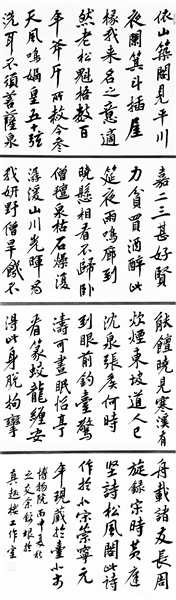 依山築閣見平川
夜闌箕斗插屋
椽我來名之意適
然老松魁梧數百
年斧斤所赦今參
天風鳴媧皇五十弦
洗耳不須菩薩泉
嘉二三子甚好賢
力貧買酒醉此
筵夜雨鳴廊到
曉懸相看不歸臥
僧氈泉枯石燥復
潺湲山川光暉為
我妍野僧旱饑不
能饘曉見寒溪有
炊煙東坡道人已
沈泉張侯何時
到眼前釣臺驚
濤可晝眠怡亭
看篆蛟龍纏安
得此身脫拘攣
舟載諸友長周
旋錄宋時黃庭
堅詩松風閣此詩
作於北宋崇寧元
年現藏於臺北故
博物院丙申春於
工作室